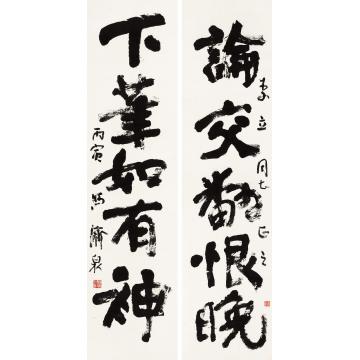 論交翻恨晚
李立同志正之
下筆如有神
丙寅馮濟泉